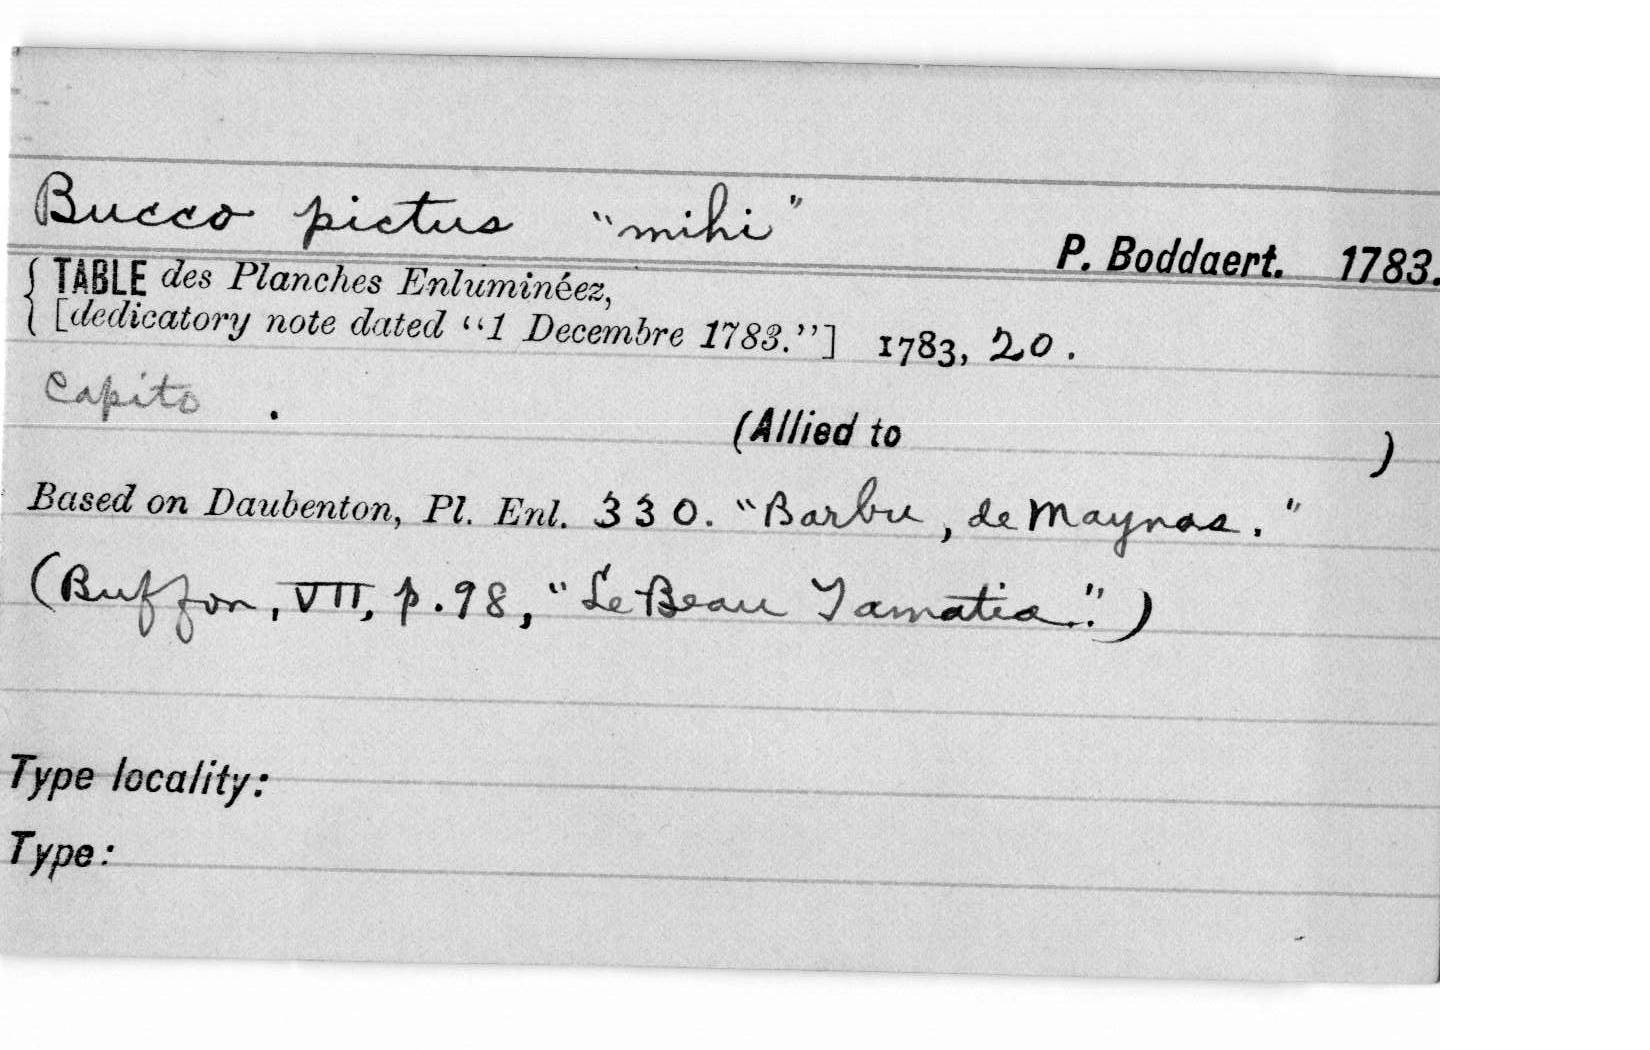 Bucco pictus "mihi"
P. Boddaert. 1783.
TABLE des Planches Enluminéez,
[dedicatory note dated "1 Decembre 1783."] 1783, 20.
Capito .
(Allied to )
Based on Daubenton, Pl. Enl. 330. "Barbu, de Maynas."
(Buffon, VII, p. 98, "Le Beau Tamatia.")
Type locality:
Type: